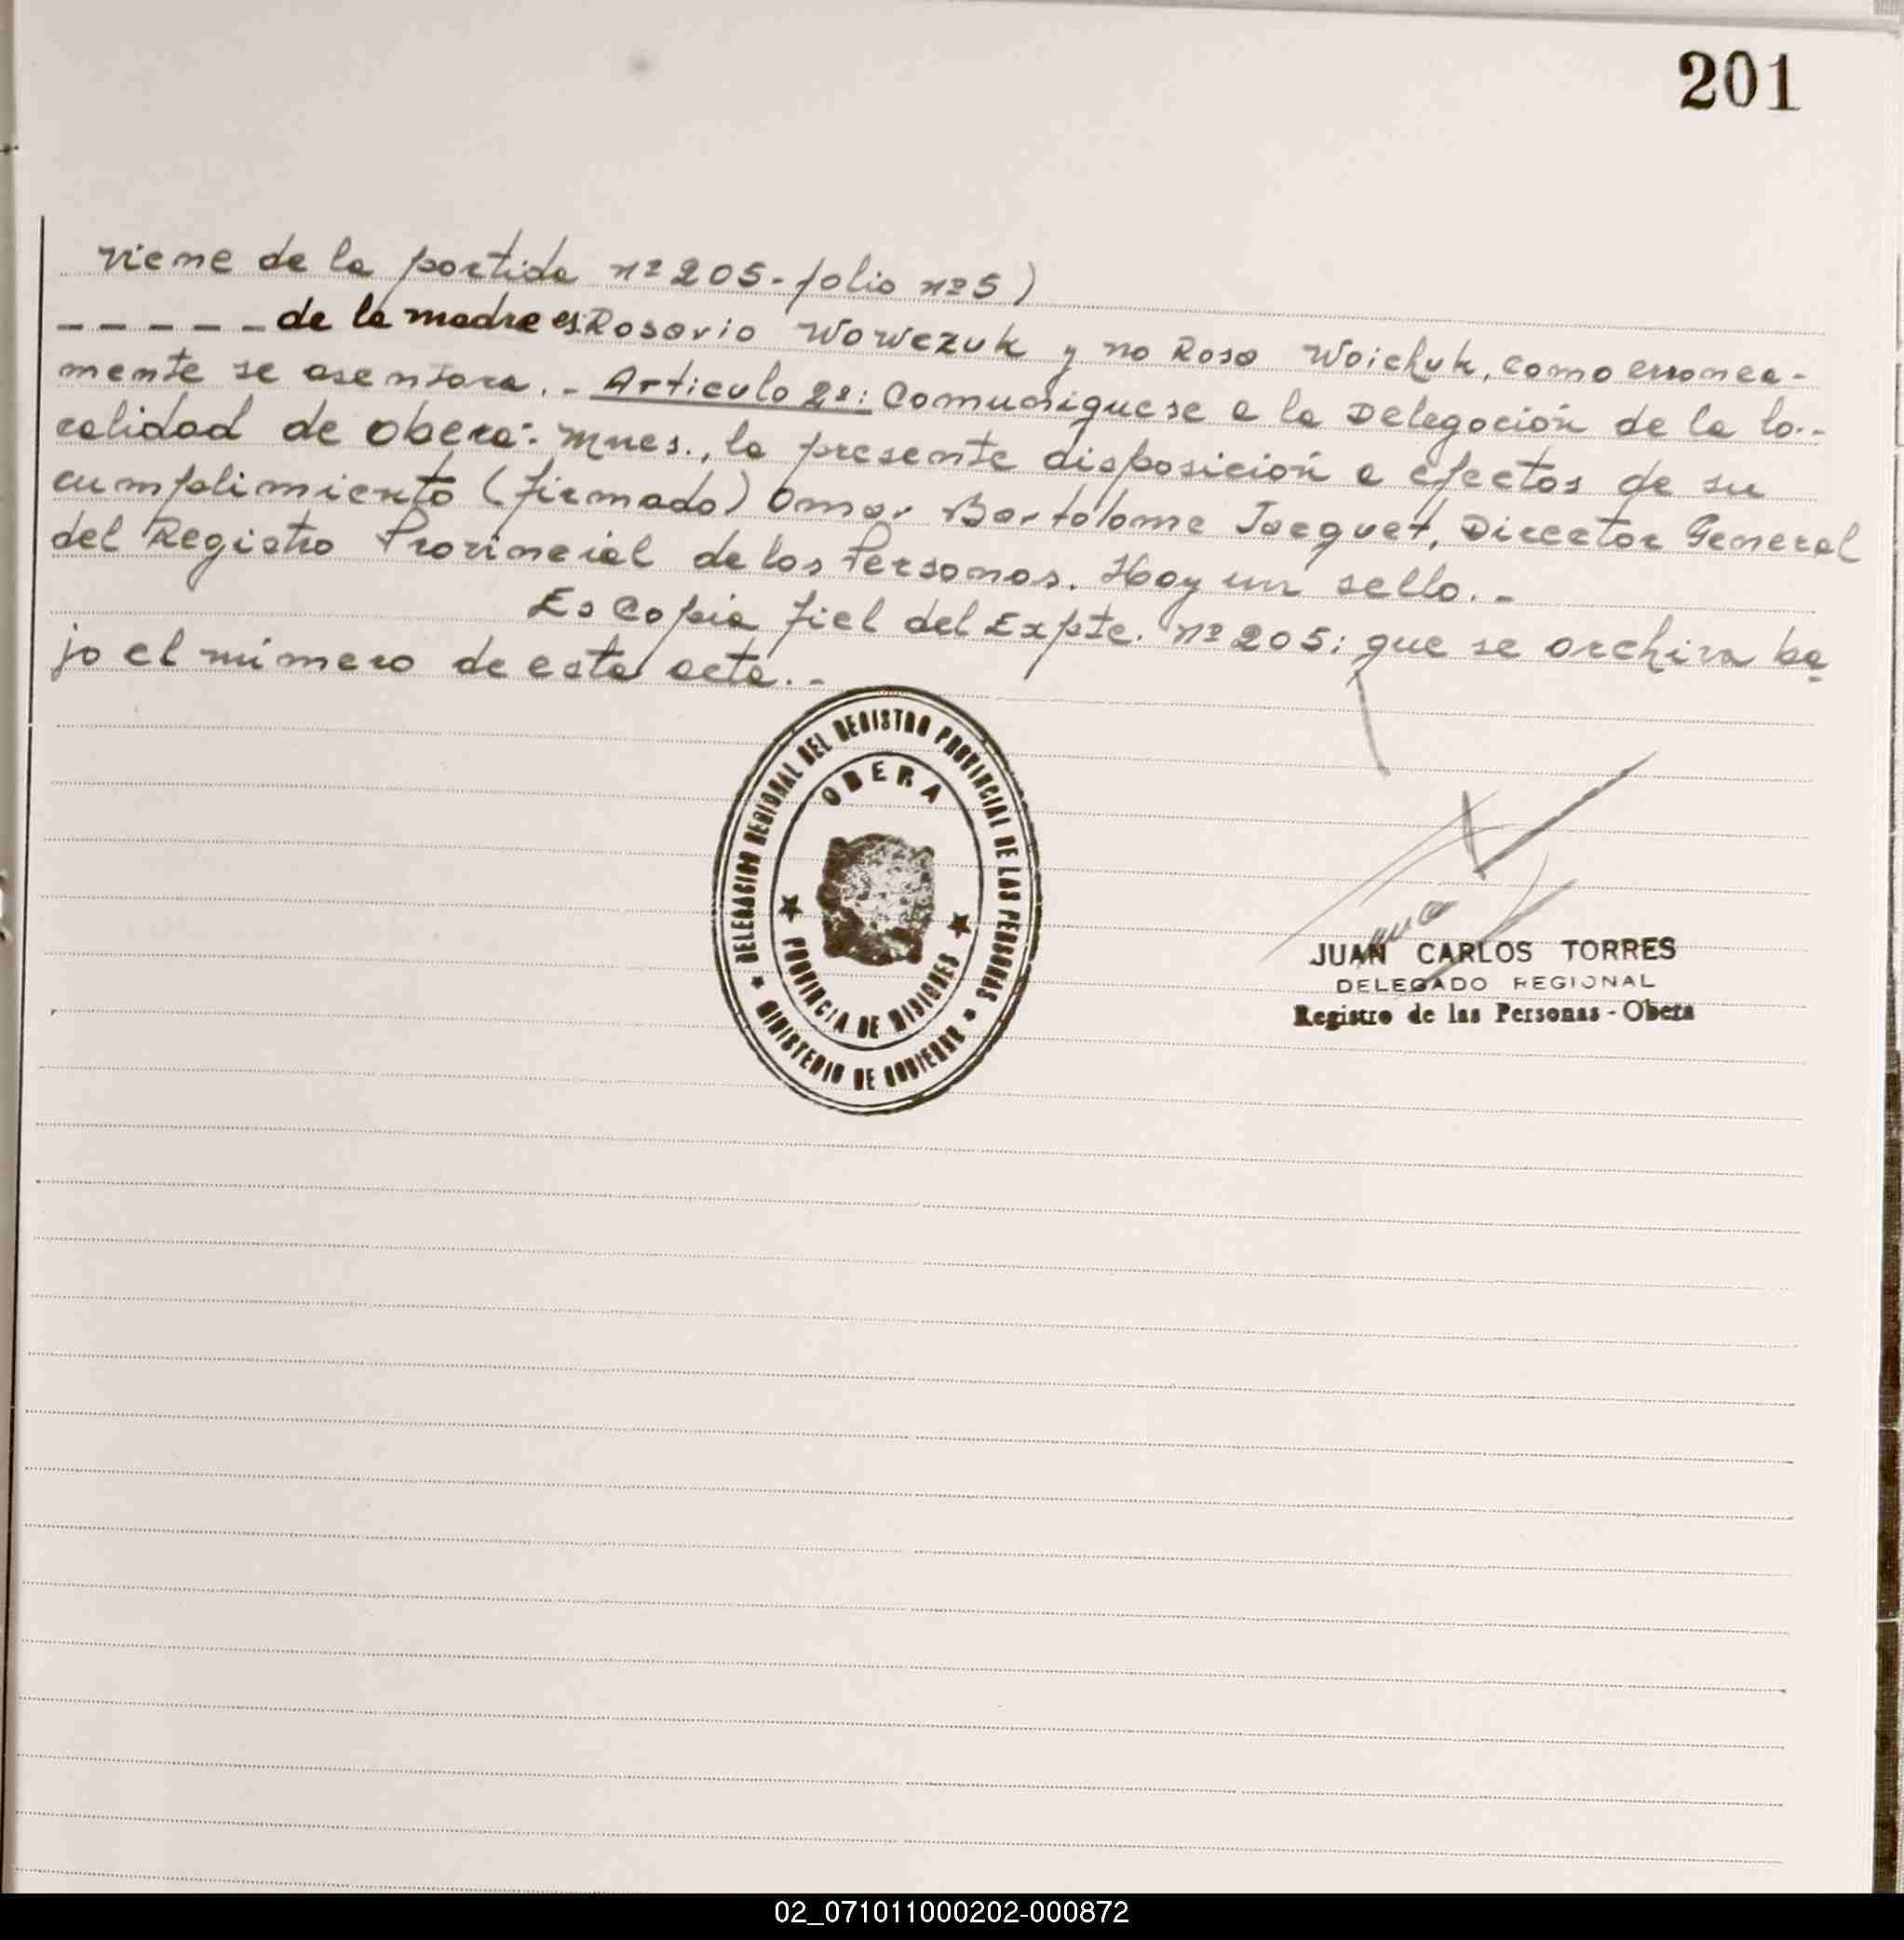 201
viene de la partida nº 205-folio nº 5)
_ _ _ _ _ de la madre es: Rosario Wowczuk y no Rosa Woichuk, como erronea-
mente se asentara. - Articulo 2º: Comuniquese a la Delegación de la lo--
calidad de obera: mnes., la presente disposición a efectos de su
cumplimiento (firmado) Omar Bartolome Jacquet, Director General
del Registro Provincial de los Personas. Hay un sello. -
Es Copia fiel del Expte. nº 205; que se archiva ba
jo el número de esta acta. -
DELEGACION REGIONAL DEL REGISTRO PROVINCIAL DE LAS PERSONAS
OBERA
PROVINCIA DE MISIONES
MINISTERIO DE GOBIERNO
JUAN CARLOS TORRES
DELEGADO REGIONAL
Registro de las Personas - Obera
02_071011000202-000872